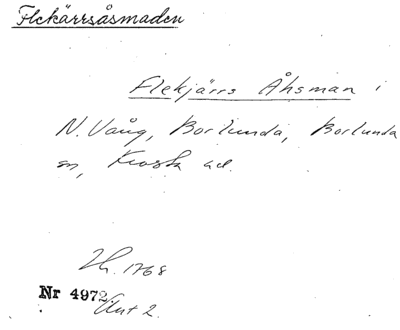 Flekärrsåsmaden
Flekjärrs Åhsman i
N. Vång, Borlunda, Borlunda
sn, Frosta hd.
Lh. 1768
Nr 4972. Akt 2.